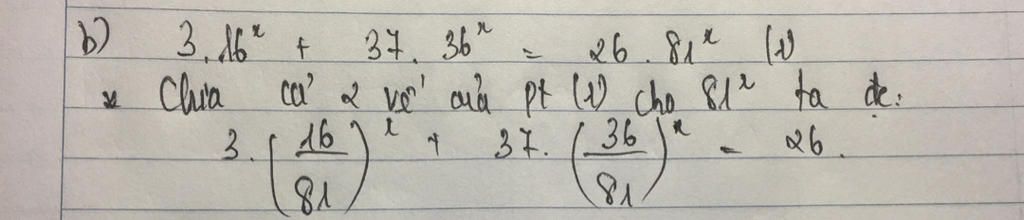 b) 3.16ˣ + 37.36ˣ = 26.81ˣ (1)
* Chia cả 2 vế của pt (1) cho 81ˣ ta đc:
3.(16/81)ˣ + 37.(36/81)ˣ = 26.